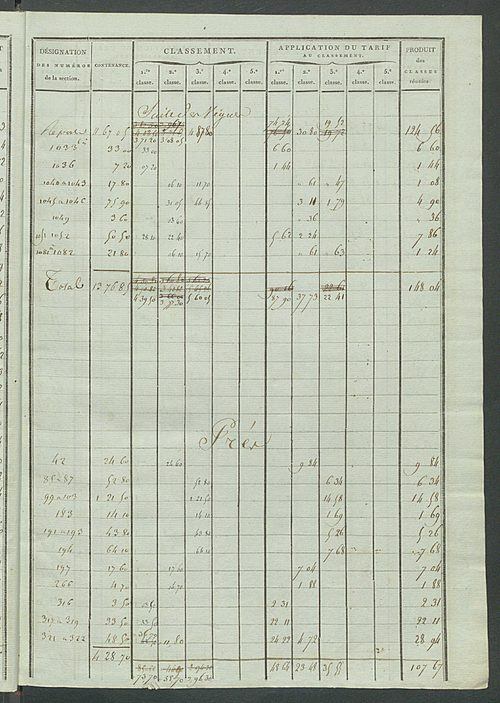 DÉSIGNATION DES NUMÉROS de la section. CONTENANCE. CLASSEMENT. APPLICATION DU TARIF AU CLASSEMENT. PRODUIT des CLASSES réunies.
1.re classe. 2.e classe. 3.e classe. 4.e classe. 5.e classe. 1.re classe. 2.e classe. 3.e classe. 4.e classe. 5.e classe.
Suite des Vignes
Report 30 80 124 56
33 00 33 00 6 60 6 60
1036 7 20 07 20 1 44 1 44
1040 à 1043 17 80 16 10 11 70 " 61 " 47 1 08
1045 à 1046 75 90 31 05 44 85 3 11 1 79 4 90
1049 3 60 13 60 " 36 " 36
1052 50 50 28 10 22 40 5 62 2 24 7 86
1082 21 80 16 10 15 70 " 61 " 63 1 24
Total 13 76 85 148 04
4 39 50 5 60 05 87 90 37 73 22 41
Prés
42 24 60 24 60 9 84 9 84
85 à 87 52 80 52 80 6 34 6 34
99 à 103 1 21 50 1 21 50 14 58 14 58
183 14 10 14 10 1 69 1 69
191 à 193 43 80 43 80 5 26 5 26
194 64 10 64 10 7 68 7 68
197 17 60 17 60 7 04 7 04
266 4 70 1 88 1 88
316 3 50 03 50 2 31 2 31
317 à 319 33 50 33 50 22 11 22 11
321 à 322 48 50 11 80 24 22 4 72 28 94
4 28 70
48 64 23 48 35 55 107 67
73 70 58 70 2 96 30